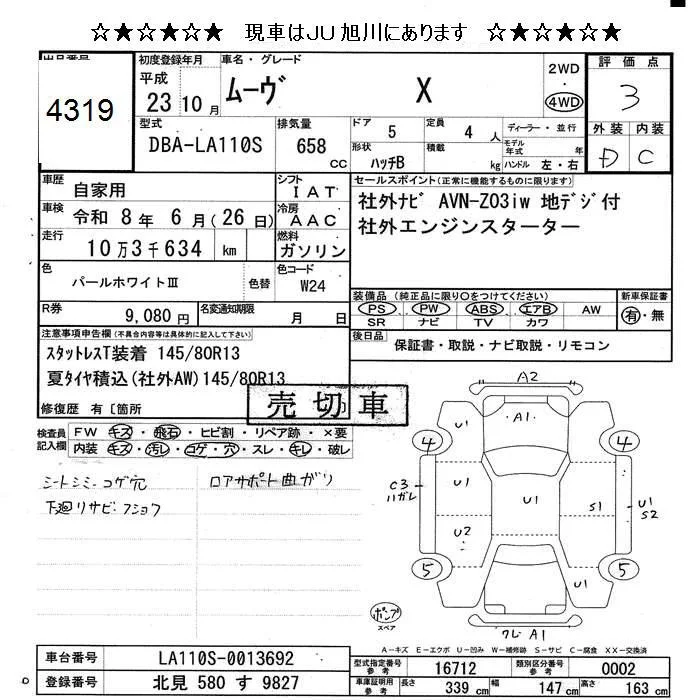 ☆★☆★☆ 現車はJU旭川にあります ☆★☆★☆
出品番号
4319
初度登録年月
平成
23 10 月
車名・グレード
ムーヴ X
2WD
・
4WD
評価点
3
外装 内装
D C
型式
DBA-LA110S
排気量
658 CC
ドア 5
定員 4 人
ディーラー・並行
形状 ハッチB
積載 kg
モデル年式 年
ハンドル 左・右
車歴 自家用
シフト IAT
車検 令和 8年 6月(26日)
冷房 AAC
走行 10万3千634 km
燃料 ガソリン
セールスポイント(正常に機能するものに限ります)
社外ナビ AVN-Z03iw 地デジ付
社外エンジンスターター
色 パールホワイトⅢ
色替
色コード W24
R券 9,080円
名変通知期限 月 日
装備品(純正品に限り〇をつけてください)
PS PW ABS エアB AW
SR ナビ TV カワ
新車保証書
有・無
後日品 保証書・取説・ナビ取説・リモコン
注意事項申告欄(不具合内容等は具体的に記入して下さい)
スタットレスT装着 145/80R13
夏タイヤ積込(社外AW)145/80R13
修復歴 有〔箇所 〕
売切車
検査員記入欄
FW キズ・飛石・ヒビ割・リペア跡・×要
内装 キズ・汚レ・コゲ・穴・スレ・キレ・破レ
シートシミ・コゲ穴 ロアサポート曲ガリ
下廻リサビ・フショク
A2
U1 A1
4 4
C3 ハガレ
U1 U1 S1
U1 S2
U2
5 5
U1 U1
ポンプ
スペア
ワレ A1
A－キズ E－エクボ U－凹み W－補修跡 S－サビ C－腐食 XX－交換済
車台番号 LA110S-0013692
登録番号 北見 580 す 9827
型式指定番号 参考 16712
類別区分番号 参考 0002
車庫証明用 参考 長さ 339 cm 幅 147 cm 高さ 163 cm